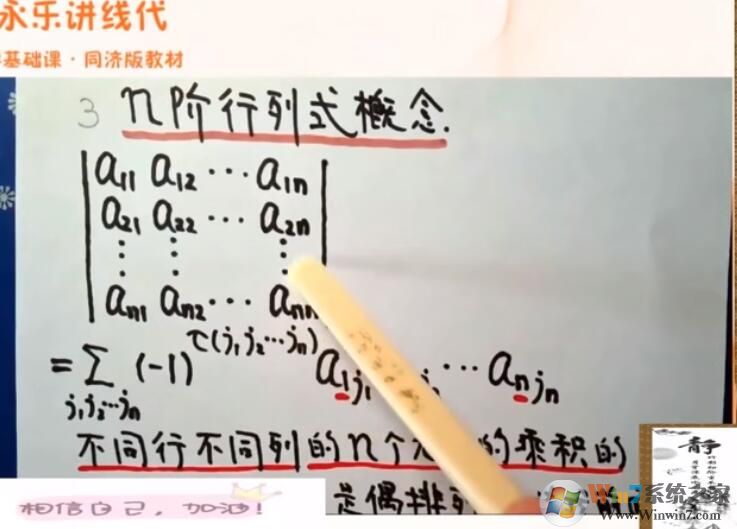 永乐讲线代
基础课·同济版教材
3 n阶行列式概念.
a11 a12 ⋯ a1n
a21 a22 ⋯ a2n
⋮ ⋮ ⋮
an1 an2 ⋯ ann
= Σ (-1) τ(j1j2⋯jn) a1j1 ⋯ anjn
j1j2⋯jn
不同行不同列的n个 的乘积的
是偶排
相信自己，加油！
静
Win7系统之家
www.Winwin7.com